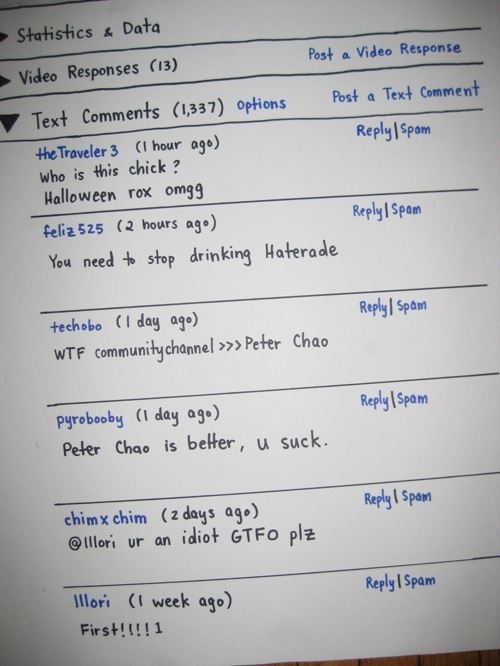 Statistics & Data
Video Responses (13) Post a Video Response
Text Comments (1,337) Options Post a Text Comment
theTraveler3 (1 hour ago) Reply|Spam
Who is this chick?
Halloween rox omgg
feliz525 (2 hours ago) Reply|Spam
You need to stop drinking Haterade
techobo (1 day ago) Reply|Spam
WTF communitychannel >>> Peter Chao
pyrobooby (1 day ago) Reply|Spam
Peter Chao is better, u suck.
chimxchim (2 days ago) Reply|Spam
@Illori ur an idiot GTFO plz
Illori (1 week ago) Reply|Spam
First!!!!1